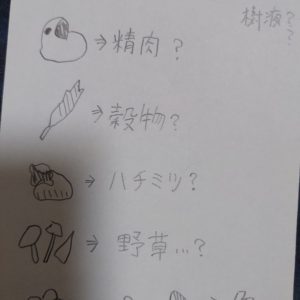 樹液??
⇒精肉?
⇒穀物?
⇒ハチミツ?
⇒野草...?